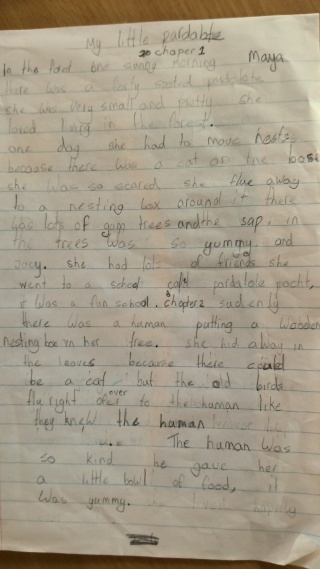 My little pardalote
chaper 1
Maya
In the forest one sunny morning
there was a forty spoted pardalote
she was very small and pretty she
loved living in the forest.
one day she had to move nests
because there was a cat as the boss
she was so scared she flue away
to a nesting box around it there
was lots of gum trees and the sap in
the trees was so yummy and
Jucy. she had lots of friends she
went to a school calls pardalote pacht,
it was a fun school. chapter 2 sudenly
there was a human putting a wooden
nesting box in her tree. she hid away in
the leaves because there could
be a cat but the old birds
flu right over to the human like
they knew the human
The human was
so kind he gave her
a little bowl of food, it
was yummy.